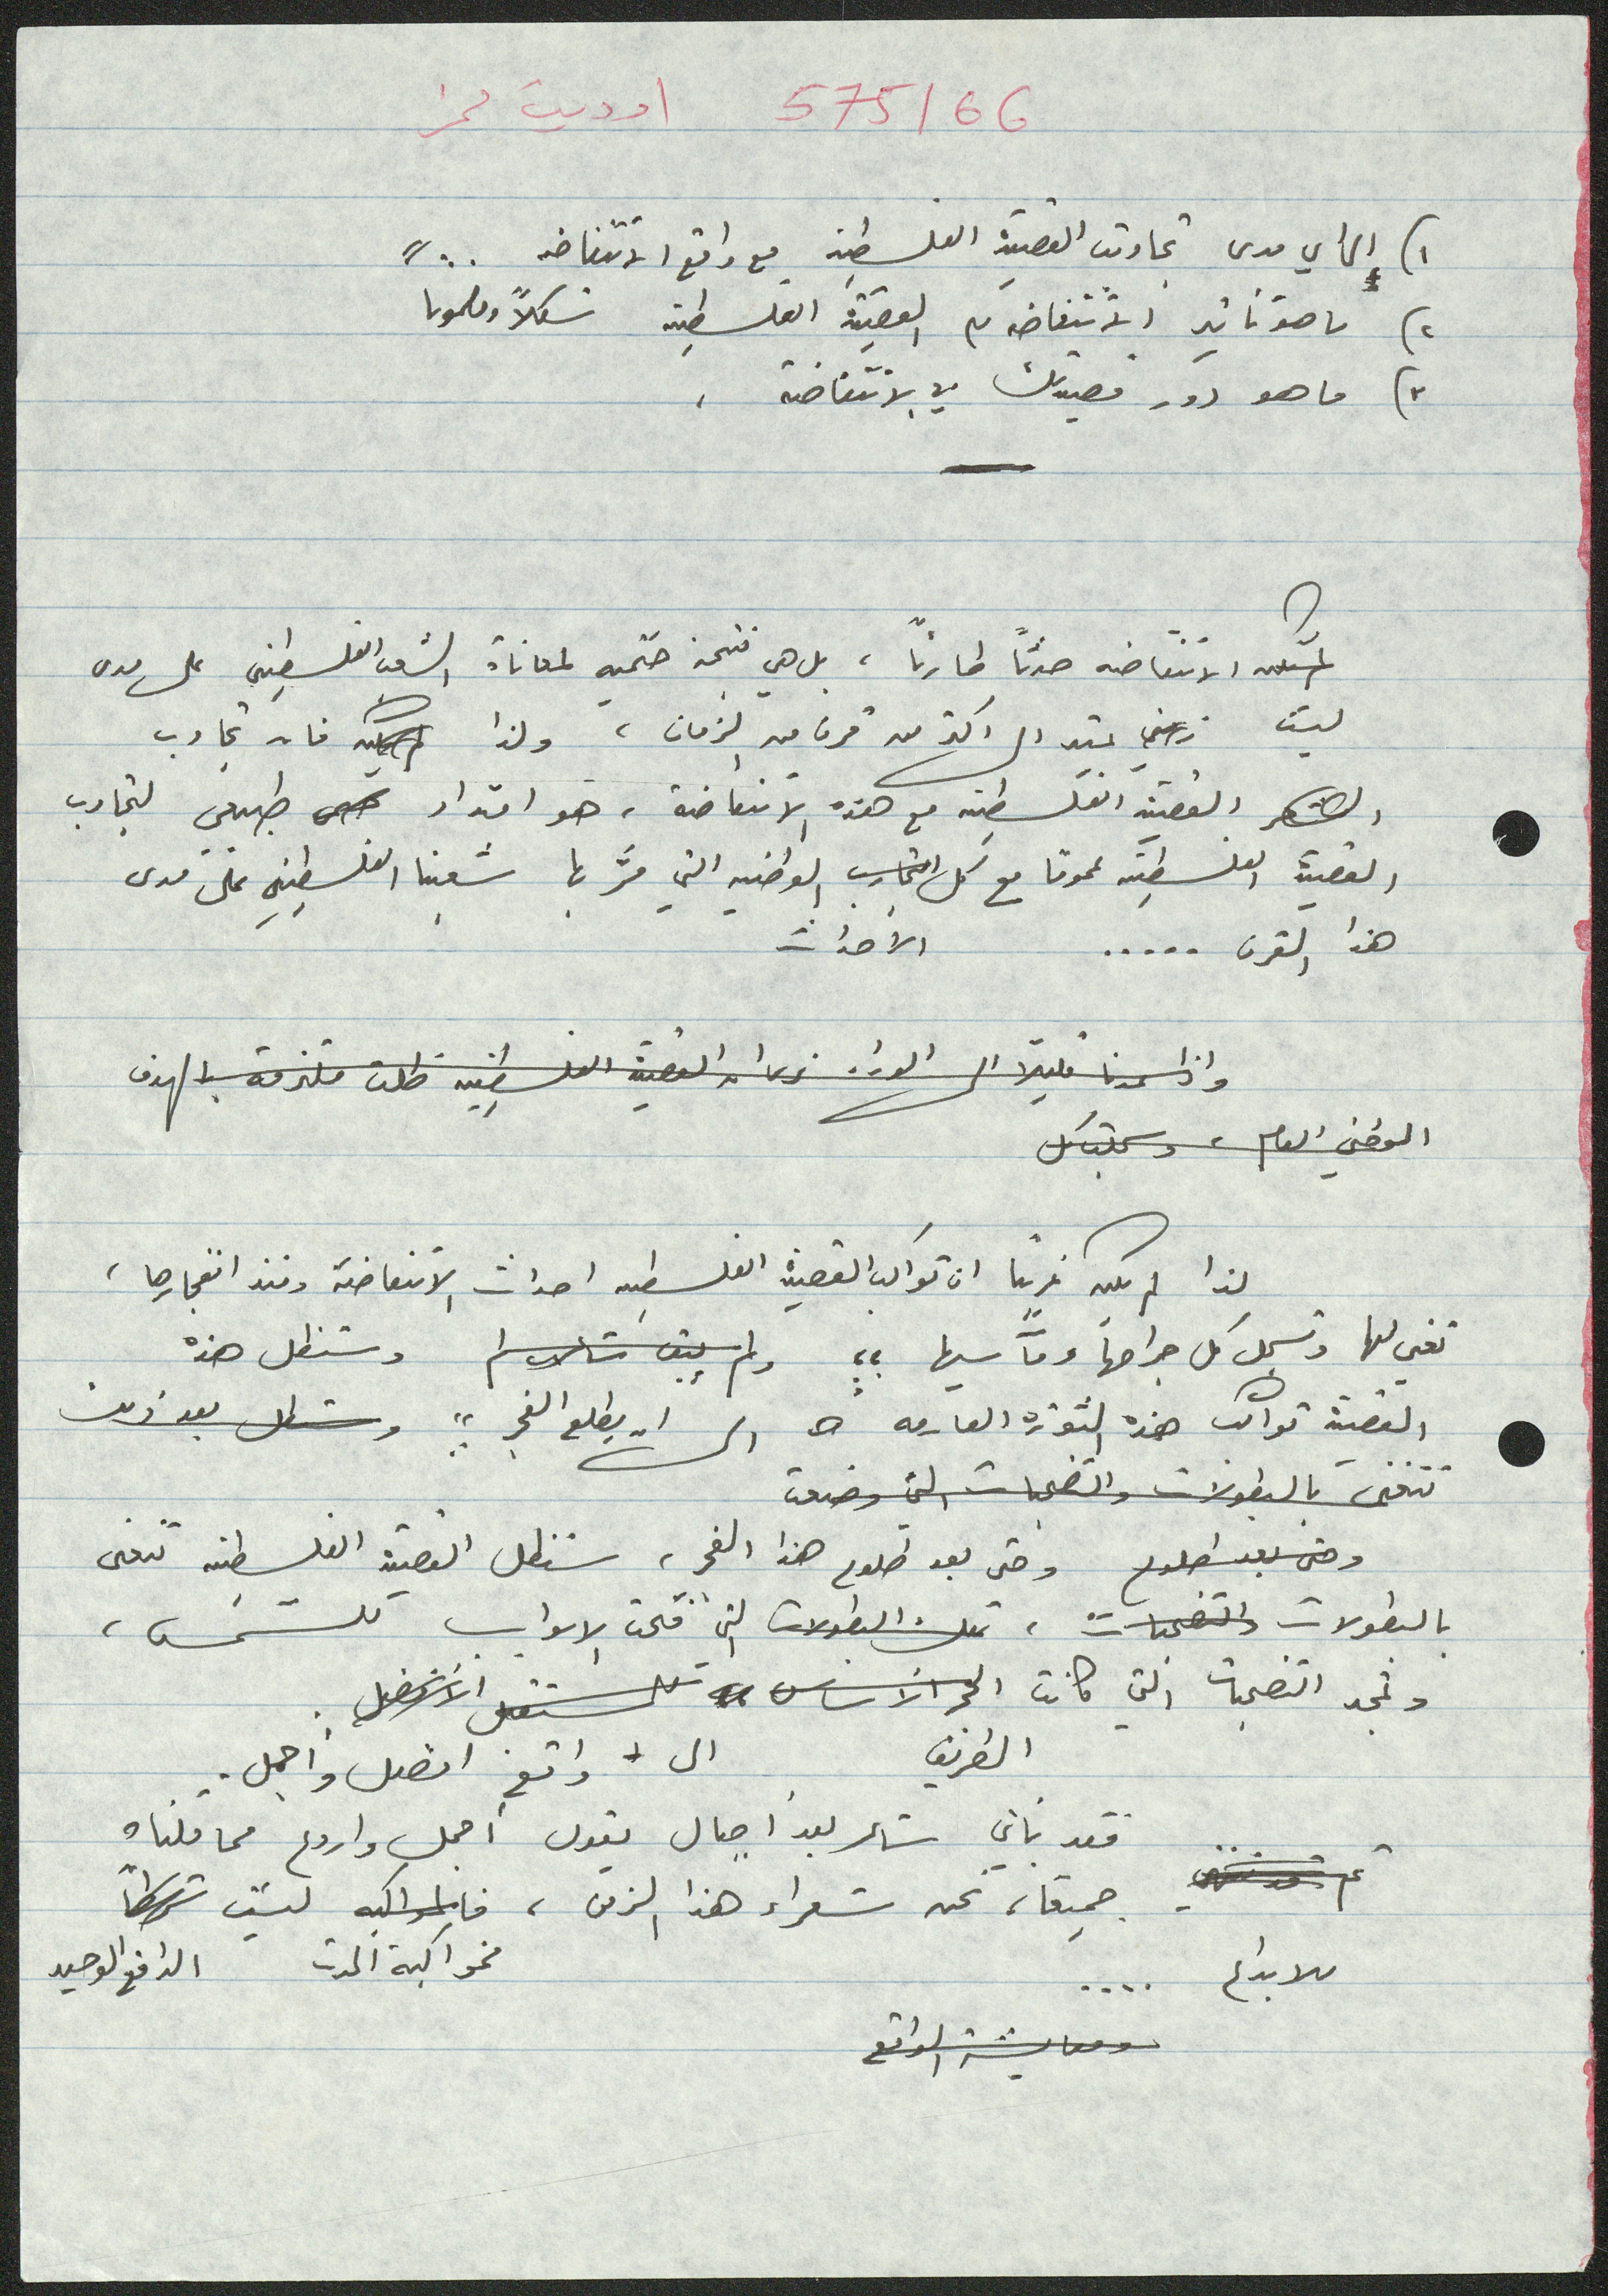 575/66 اوديت نمر
١) إلى أي مدى تجاوبت القصيدة الفلسطينية مع واقع الانتفاضة ..
٢) ما هو تأثير الانتفاضة على القصيدة الفلسطينية شكلاً ومضمونا
٣) ما هو دور قصيدتك في الانتفاضة ،
لم تكن الانتفاضه حدثاً طارئاً ، بل هي نتيجة حتميه لمعاناة الشعب الفلسطيني على مدى
ليست زمني يمتد الى اكثر من قرن من الزمان ، ولذا لم يكن فان تجاوب
القصيدة الفلسطينيه مع هذه الانتفاضة ، هو امتداد طبيعي لتجاوب
القصيدة الفلسطينيه عموماً مع كل التجارب الوطنيه التي مرَّ بها شعبنا الفلسطيني على مدى
هذا القرن ..... الأحداث
واذا عدنا قليلاً الى الوراء نرى ان القصيدة الفلسطينيه ظلت ملتزمة بالهدف
الوطني العام ، وستبقى
لذا لم يكن غريباً ان تواكب القصيدة الفلسطينيه احداث الانتفاضة ومنذ انفجارها ،
تغني لها وتسجل كل جراحها ومآسيها ؛؛ ولم يبق شاعر وستظل هذه
القصيدة تواكب هذه الثورة العارمه الى ان يطلع الفجر ؛؛ وستظل بعد ذلك
تتغنى بالبطولات والتضحيات التي وضعت
وحتى بعد طلوع وحتى بعد طلوع هذا الفجر ، ستظل القصيدة الفلسطينيه تتغنى
بالبطولات والتضحيات ، تلك البطولات التي فتحت الابواب للشمس ،
وتمجد التضحيات التي كانت الحجر الأساس للمستقبل الأفضل .
الطريق الى واقع افضل وأجمل ..
فقد يأتي شاعر بعد أجيال يقول أجمل واروع مما قلناه
جميعاً ، نحن شعراء هذا الزمن ، فالمواكبه ليست شرطاً
للابداع .... فمواكبة الحدث الدافع الوحيد
ومعايشة الواقع